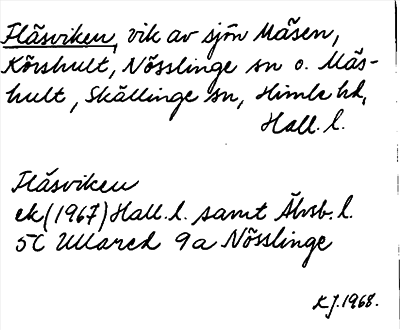 Flåsviken, vik av sjön Måsen,
Körshult, Nösslinge sn o. Mås-
hult, Skällinge sn, Himle hd,
Hall. l.
Flåsviken
ek (1967) Hall. l. samt Älvsb. l.
5C Ullared 9a Nösslinge
K J. 1968.